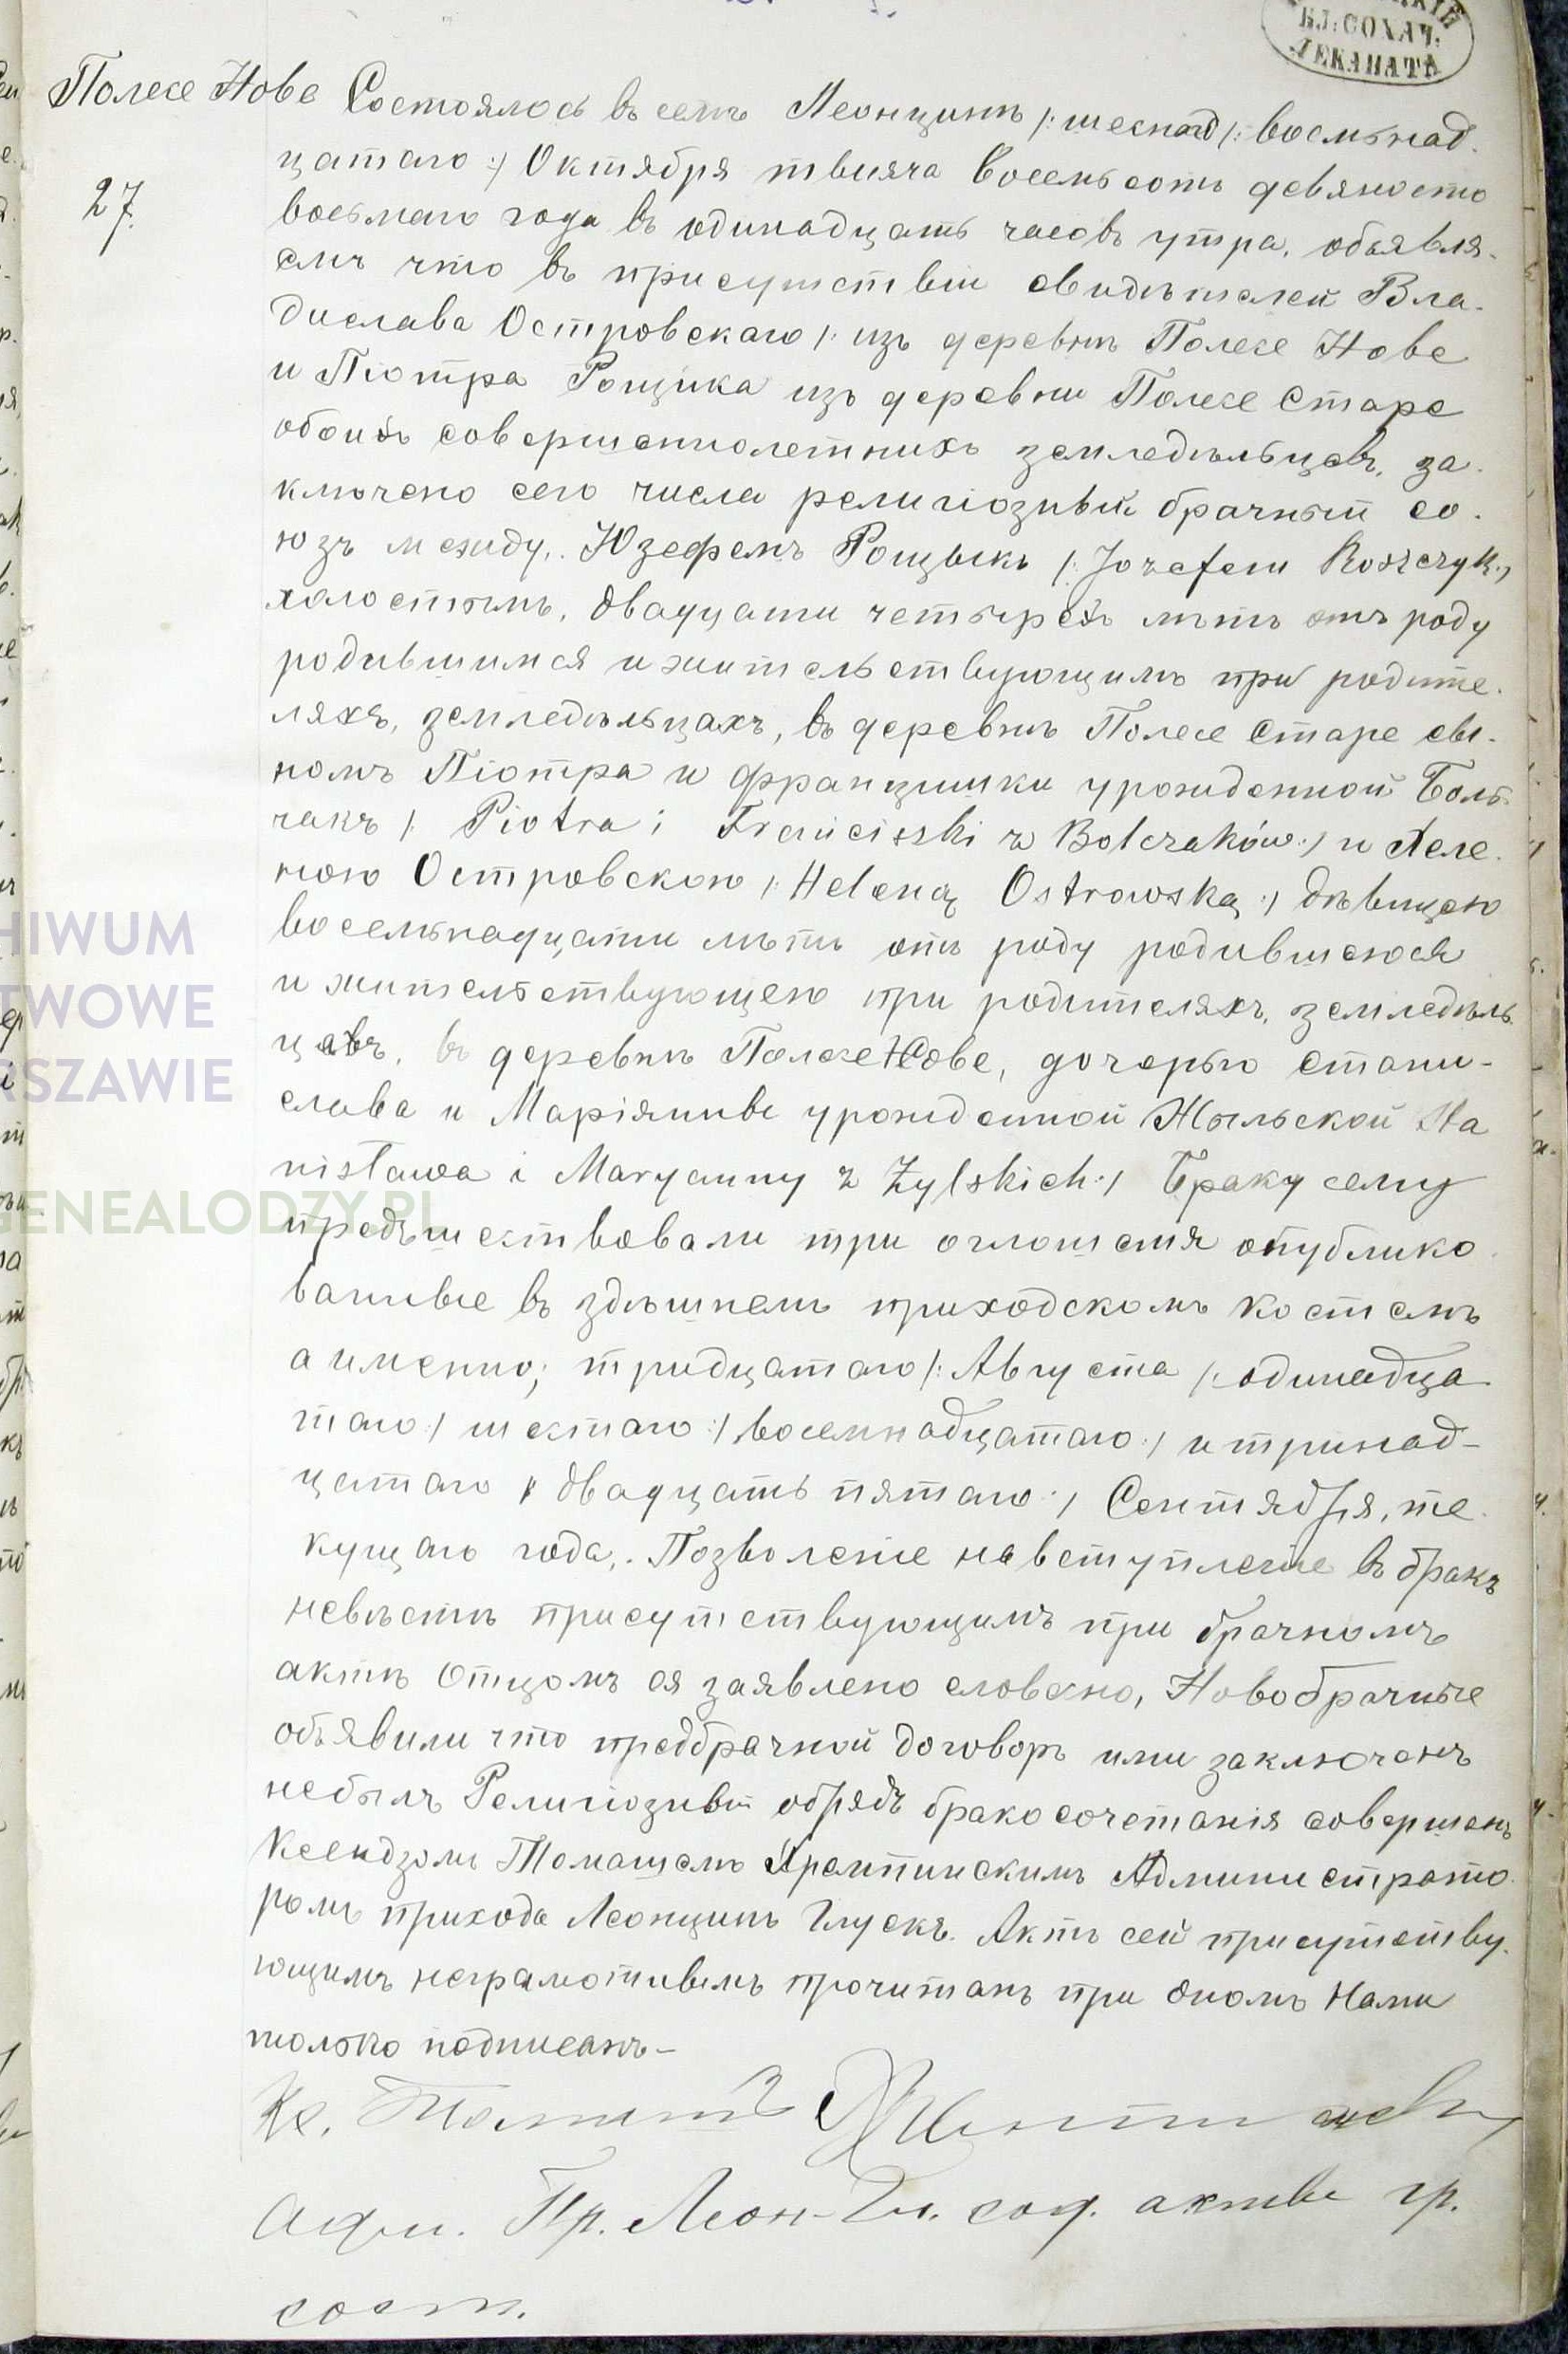 БЛ: СОХАЧ:
ДЕКАНАТА
Полесе Нове
27.
Состоялось въ селѣ Леонцинѣ /: шеснад /: восьмнад.
цатаго :/ Октября тысяча восемьсотъ девяносто
восьмаго года въ одинадцать часовъ утра, объявля-
емъ что въ присутствіи свидѣтелей Вла-
дислава Островскаго /: изъ деревнѣ Полесе Нове
и Піотра Рощика изъ деревни Полесе Старе
обоихъ совершеннолетнихъ земледѣльцевъ, за-
ключено сего числа религіозный брачный со-
юзъ между,. Юзефемъ Рощыкъ /: Jozefem Roszczyk :/
холостымъ, двадцати четырехъ лѣтъ отъ роду
родившимся и жительствующимъ при родите-
ляхъ, земледѣльцахъ, въ деревнѣ Полесе Старе сы-
номъ Піотра и Францишки урожденной Боль-
чакъ /: Piotra i Franciszki z Bolczaków :/ и Хеле-
ною Островскою /: Heleną Ostrowską :/ дѣвицею
восемьнадцати лѣтъ отъ роду родившеюся
и жительствующею при родителяхъ, земледѣль-
цевъ, въ деревнѣ Полесе Нове, дочерью Стани-
слава и Маріянны урожденной Жыльской Sta
nisława i Maryanny z Żylskich :/ Браку сему
предшествовали три оглошенія опублико-
ванные въ здѣшнемъ приходскомъ костелѣ
а именно; тридцатаго /: Августа /: одинадца
таго :/ шестаго :/ восемнадцатаго :/ и тринад-
цатаго /: двадцать пятаго :/ Сентября, те-
кущаго года,. Позволеніе на вступленіе въ бракъ
невѣстѣ присутствующимъ при брачномъ
актѣ Отцомъ ея заявлено словесно, Новобрачные
объявили что предбрачной договоръ ими заключенъ
небылъ Религіозный обрядъ бракосочетанія совершенъ
Ксендзомъ Томашемъ Администрато-
ромъ прихода Леонцинъ Глускъ. Актъ сей присутству-
ющимъ неграмотнымъ прочитанъ при ономъ Нами
только подписанъ-
Кс. Томашъ
Адм. Пр. Леон-Гл. сод. акты гр.
сост.
HIWUM
TWOWE
RSZAWIE
GENEALODZY.PL